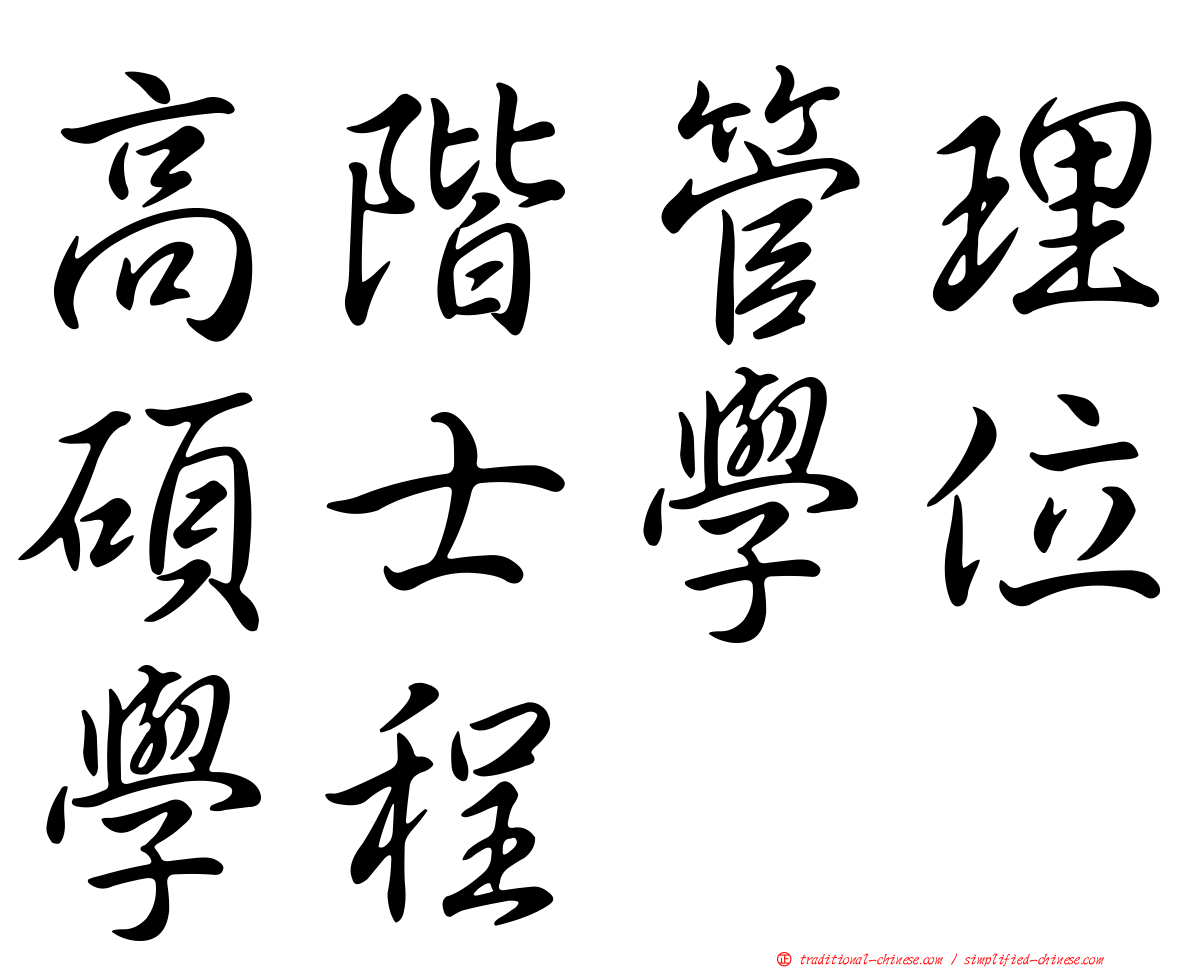 高階管理
碩士學位
學程
㊣ traditional-chinese.com / simplified-chinese.com